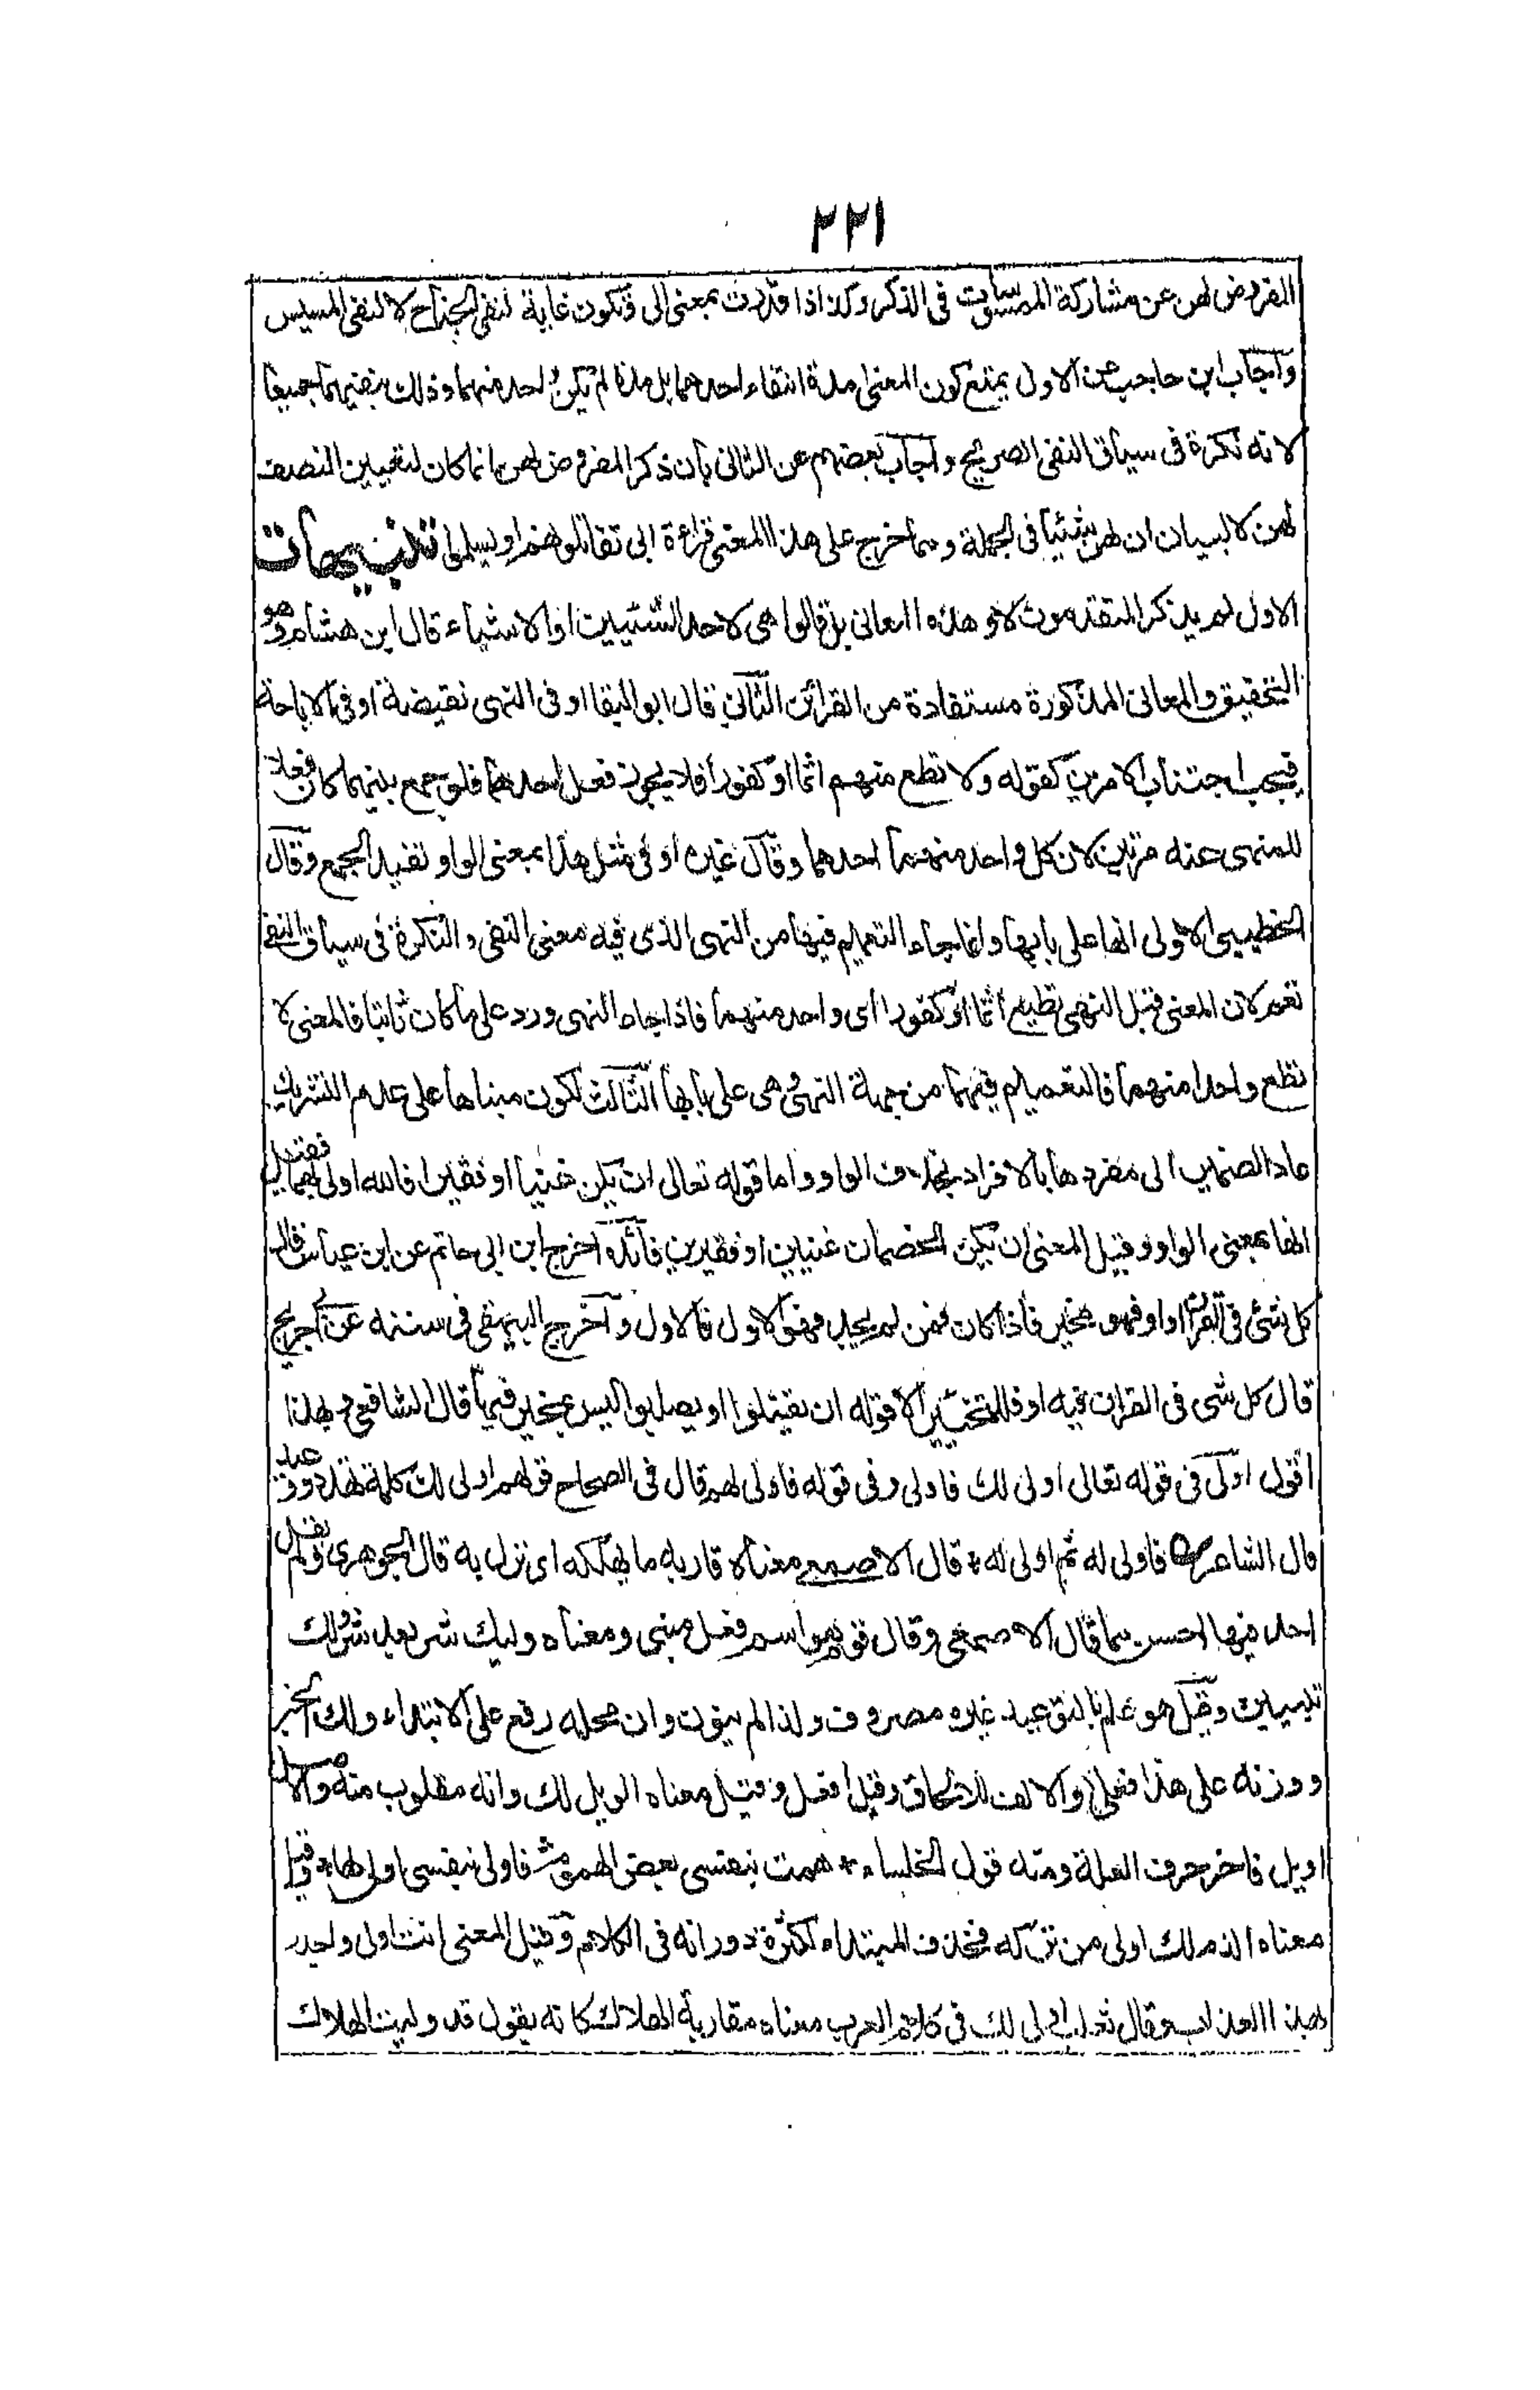 ٢٢١
المفروض لهن عن مشاركة الممسوسات فى الذكر وكذا اذا قدرت بمعنى الى وتكون غاية لنفى الجناح لا لنفى المسيس
واجاب ابن حاجب عن الاول بمنع كون المعنى مدة انتفاء احدهما بل مدة لم يكن واحد منهما وذلك بنفيهما جميعا
لانه نكرة فى سياق النفى الصريح واجاب بعضهم عن الثانى بان ذكر المفروض لهن انما كان لتعيين النصف
لهن لا لبيان ان لهن شيئا فى الجملة ومما خرج على هذا المعنى قراءة ابى تقاتلونهم او يسلموا تنبيهات
الاول لم يذكر المتقدمون لاو هذه المعانى بل قالوا هى لاحد الشيئين او الاشياء قال ابن هشام وهو
التحقيق والمعانى المذكورة مستفادة من القرائن الثانى قال ابو البقا او فى النهى نقيضة او فى الاباحة
فيجب اجتناب الامرين كقوله ولا تطع منهم اثما او كفورا فلا يجوز فعل احدهما فلو جمع بينهما كان فعلا
للمنهى عنه مرتين لان كل واحد منهما احدهما وقال غيره او فى مثل هذا بمعنى الواو تفيد الجمع وقال
الخطيبى الاولى انها على بابها وانما جاء التعميم فيها من النهى الذى فيه معنى النفى والنكرة فى سياق النفى
تعم لان المعنى قبل النهى تطيع اثما او كفورا اى واحد منهما فاذا جاء النهى ورد على ما كان ثابتا فالمعنى لا
تطع واحدا منهما فالتعميم فيهما من جهة النهى وهى على بابها الثالث لكون مبناها على عدم التشريك
عاد الضمير الى مفردها بالافراد بخلاف الواو واما قوله تعالى ان يكن غنيا او فقيرا فالله اولى بهما فقيل
انها بمعنى الواو وقيل المعنى ان يكن الخصمان غنيين او فقيرين فائدة اخرج ابن ابى حاتم عن ابن عباس قال
كل شئ فى القران او او فهو مخير فاذا كان فمن لم يجد فهو الاول فالاول واخرج البيهقى فى سننه عن ابن جريج
قال كل شى فى القران فيه او فللتخيير الا قوله ان يقتلوا او يصلبوا ليس بمخير فيها قال الشافعى وبهذا
اقول اولى فى قوله تعالى اولى لك فاولى وفى قوله فاولى لهم قال فى الصحاح قولهم اولى لك كلمة تهدد ووعيد
قال الشاعر فاولى له ثم اولى له * قال الاصمعى معناه قاربه ما يهلكه اى نزل به قال الجوهرى ولم يقل
احد فيها احسن مما قال الاصمعى وقال قوم هو اسم فعل مبنى ومعناه وليك شر بعد شر ولك
تبيين وقيل هو علم للوعيد غير مصروف ولذا لم ينون وان محله رفع على الابتداء ولك الخبر
ووزنه على هذا فعلى والالف للالحاق وقيل افعل وقيل معناه الويل لك وانه مقلوب منه والاصل
اويل فاخر حرف العلة ومنه قول الخنساء * هممت بنفسى بعض الهموم فاولى لنفسى اولى لها * وقيل
معناه الذم لك اولى من تركه فحذف المبتداء لكثرة دورانه فى الكلام وقيل المعنى انت اولى واجدر
لهذا العذاب وقال ثعلب اولى لك فى كلام العرب معناه مقاربة الهلاك كانه يقول قد وليت الهلاك